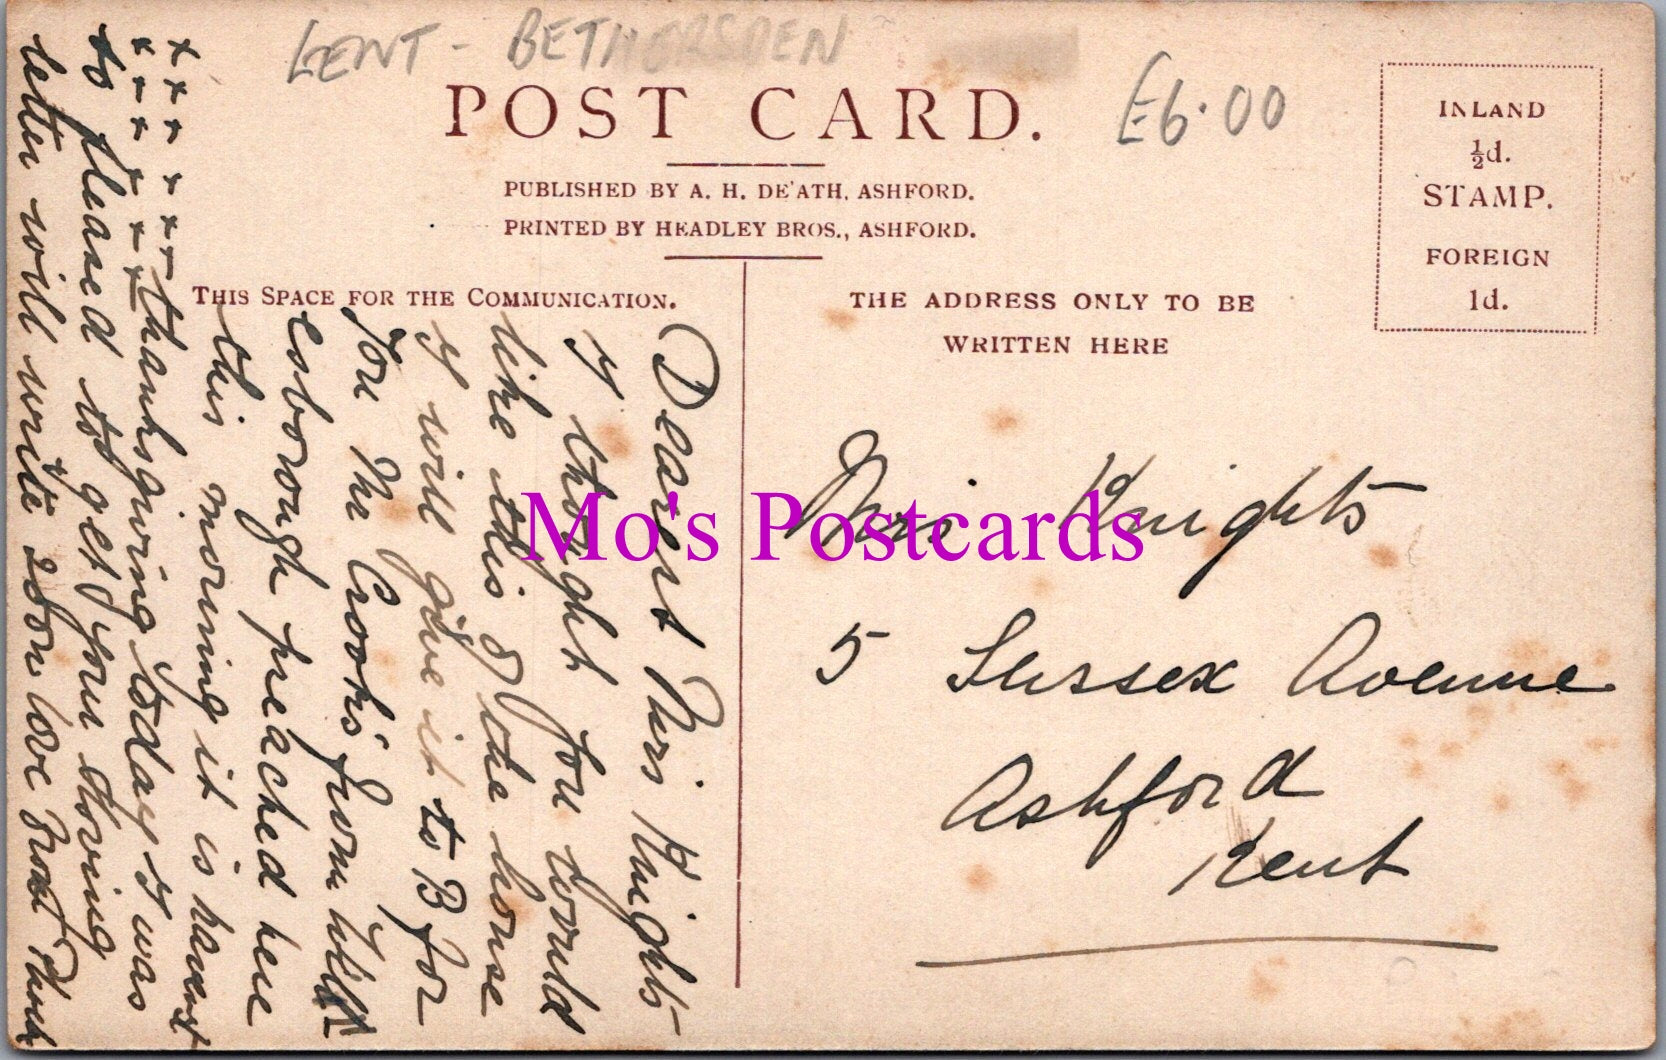 KENT - BETHERSDEN
£6.00
POST CARD.
PUBLISHED BY A. H. DE'ATH, ASHFORD.
PRINTED BY HEADLEY BROS., ASHFORD.
INLAND
½d.
STAMP.
FOREIGN
1d.
THIS SPACE FOR THE COMMUNICATION.
THE ADDRESS ONLY TO BE
WRITTEN HERE
Dearest Mrs Knights
I thought you would
like this of the house
I will give it to B for
You The Crooks' from Will
esborough preached here
this morning it is harvest
thanksgiving today I was
so pleased to get your loving
letter will write soon love from
x x x x x x
x x x x x x
Mrs Knights
5 Sussex Avenue
Ashford
Kent
Mo's Postcards